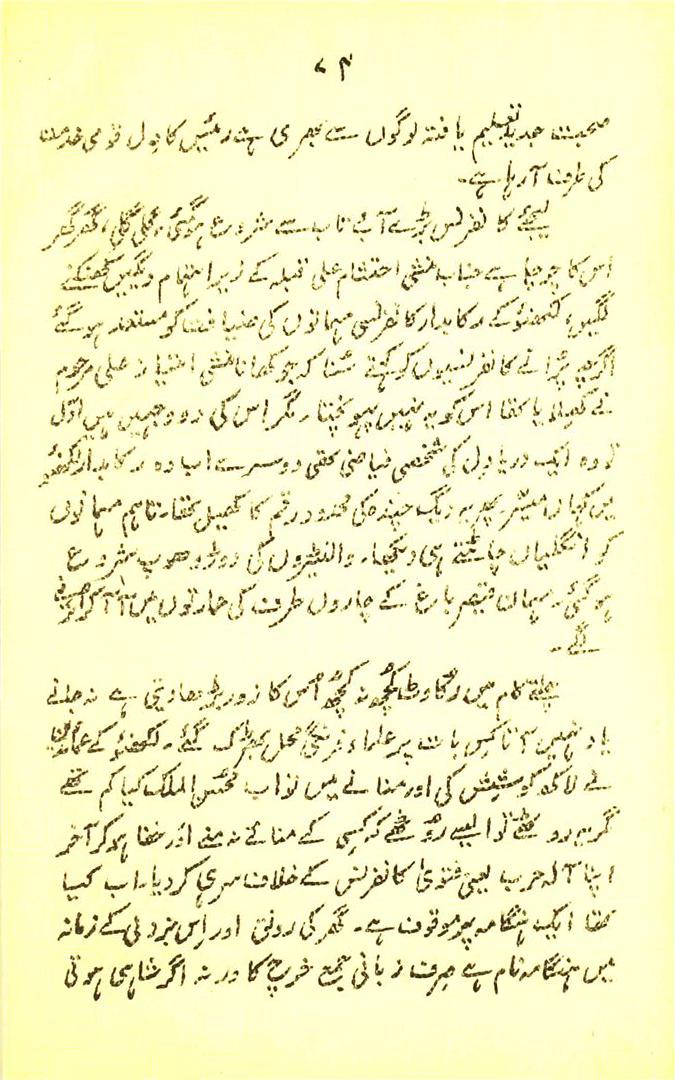 ۷۴
صحبت جدید تعلیم یافتہ لوگوں سے بھری ہے رئیس کا دل قومی خدمت
کی طرف آ رہا ہے۔
لیجئے کانفرنس بڑے آب تاب سے شروع ہوگئی، گلی گلی، گھر گھر
اس کا چرچا ہے جناب منشی احتشام علی قبلہ کے زیر اہتمام دیگیں کھنکنے
لگیں، لکھنؤ کے رکابدار کانفرنسی مہمانوں کی ضیافت کو مستعد ہو گئے
اگرچہ پرانے کانفرنسیوں کو کہتے سُنا کہ جو کھانا منشی امتیاز علی مرحوم
نے کھلایا تھا اس کو یہ نہیں پہونچتا۔ مگر اس کی دو وجہیں ہیں اوّل
تو وہ ایک دریا دل کی شخصی فیاضی تھی دوسرے اب وہ رکابدار لکھنؤ
میں کہاں میسّر۔ پھر یہ دیگ چندہ کی محدود رقم کا کھیل تھا۔ تاہم مہمانوں
کو انگلیاں چاٹتے ہی دیکھا۔ والنٹیروں کی دوڑ دھوپ شروع
ہوگئی۔ مہمان قیصر باغ کے چاروں طرف کی عمارتوں میں آ آ کر
لگے۔
چلتے کام میں رکاوٹ کچھ نہ کچھ اُس کا زور بڑھا دیتی ہے نہ جانے
یاد نہیں آتا کِس بات پر علماء فرنگی محل بھڑک گئے۔ لکھنؤ کے عمائد
نے لاکھ کوشِیش کی اور منانے میں نواب محسن الملک کیا کم تھے
مگر یہ روٹھے تو ایسے روٹھے کہ کِسی کے منائے نہ منے اور خفا ہو کر آخر
اپنا آلہ حرب یعنی فتویٰ کانفرنس کے خلاف سر ہی کر دیا۔ اب کیا
تھا ایک ہنگامہ پہ موقوف ہے۔ گھر کی رونق اور اِس بزدلی کے زمانہ
میں ہنگامہ نام ہے صِرف زبانی جمع خرچ کا ورنہ اگر شاہی ہوتی